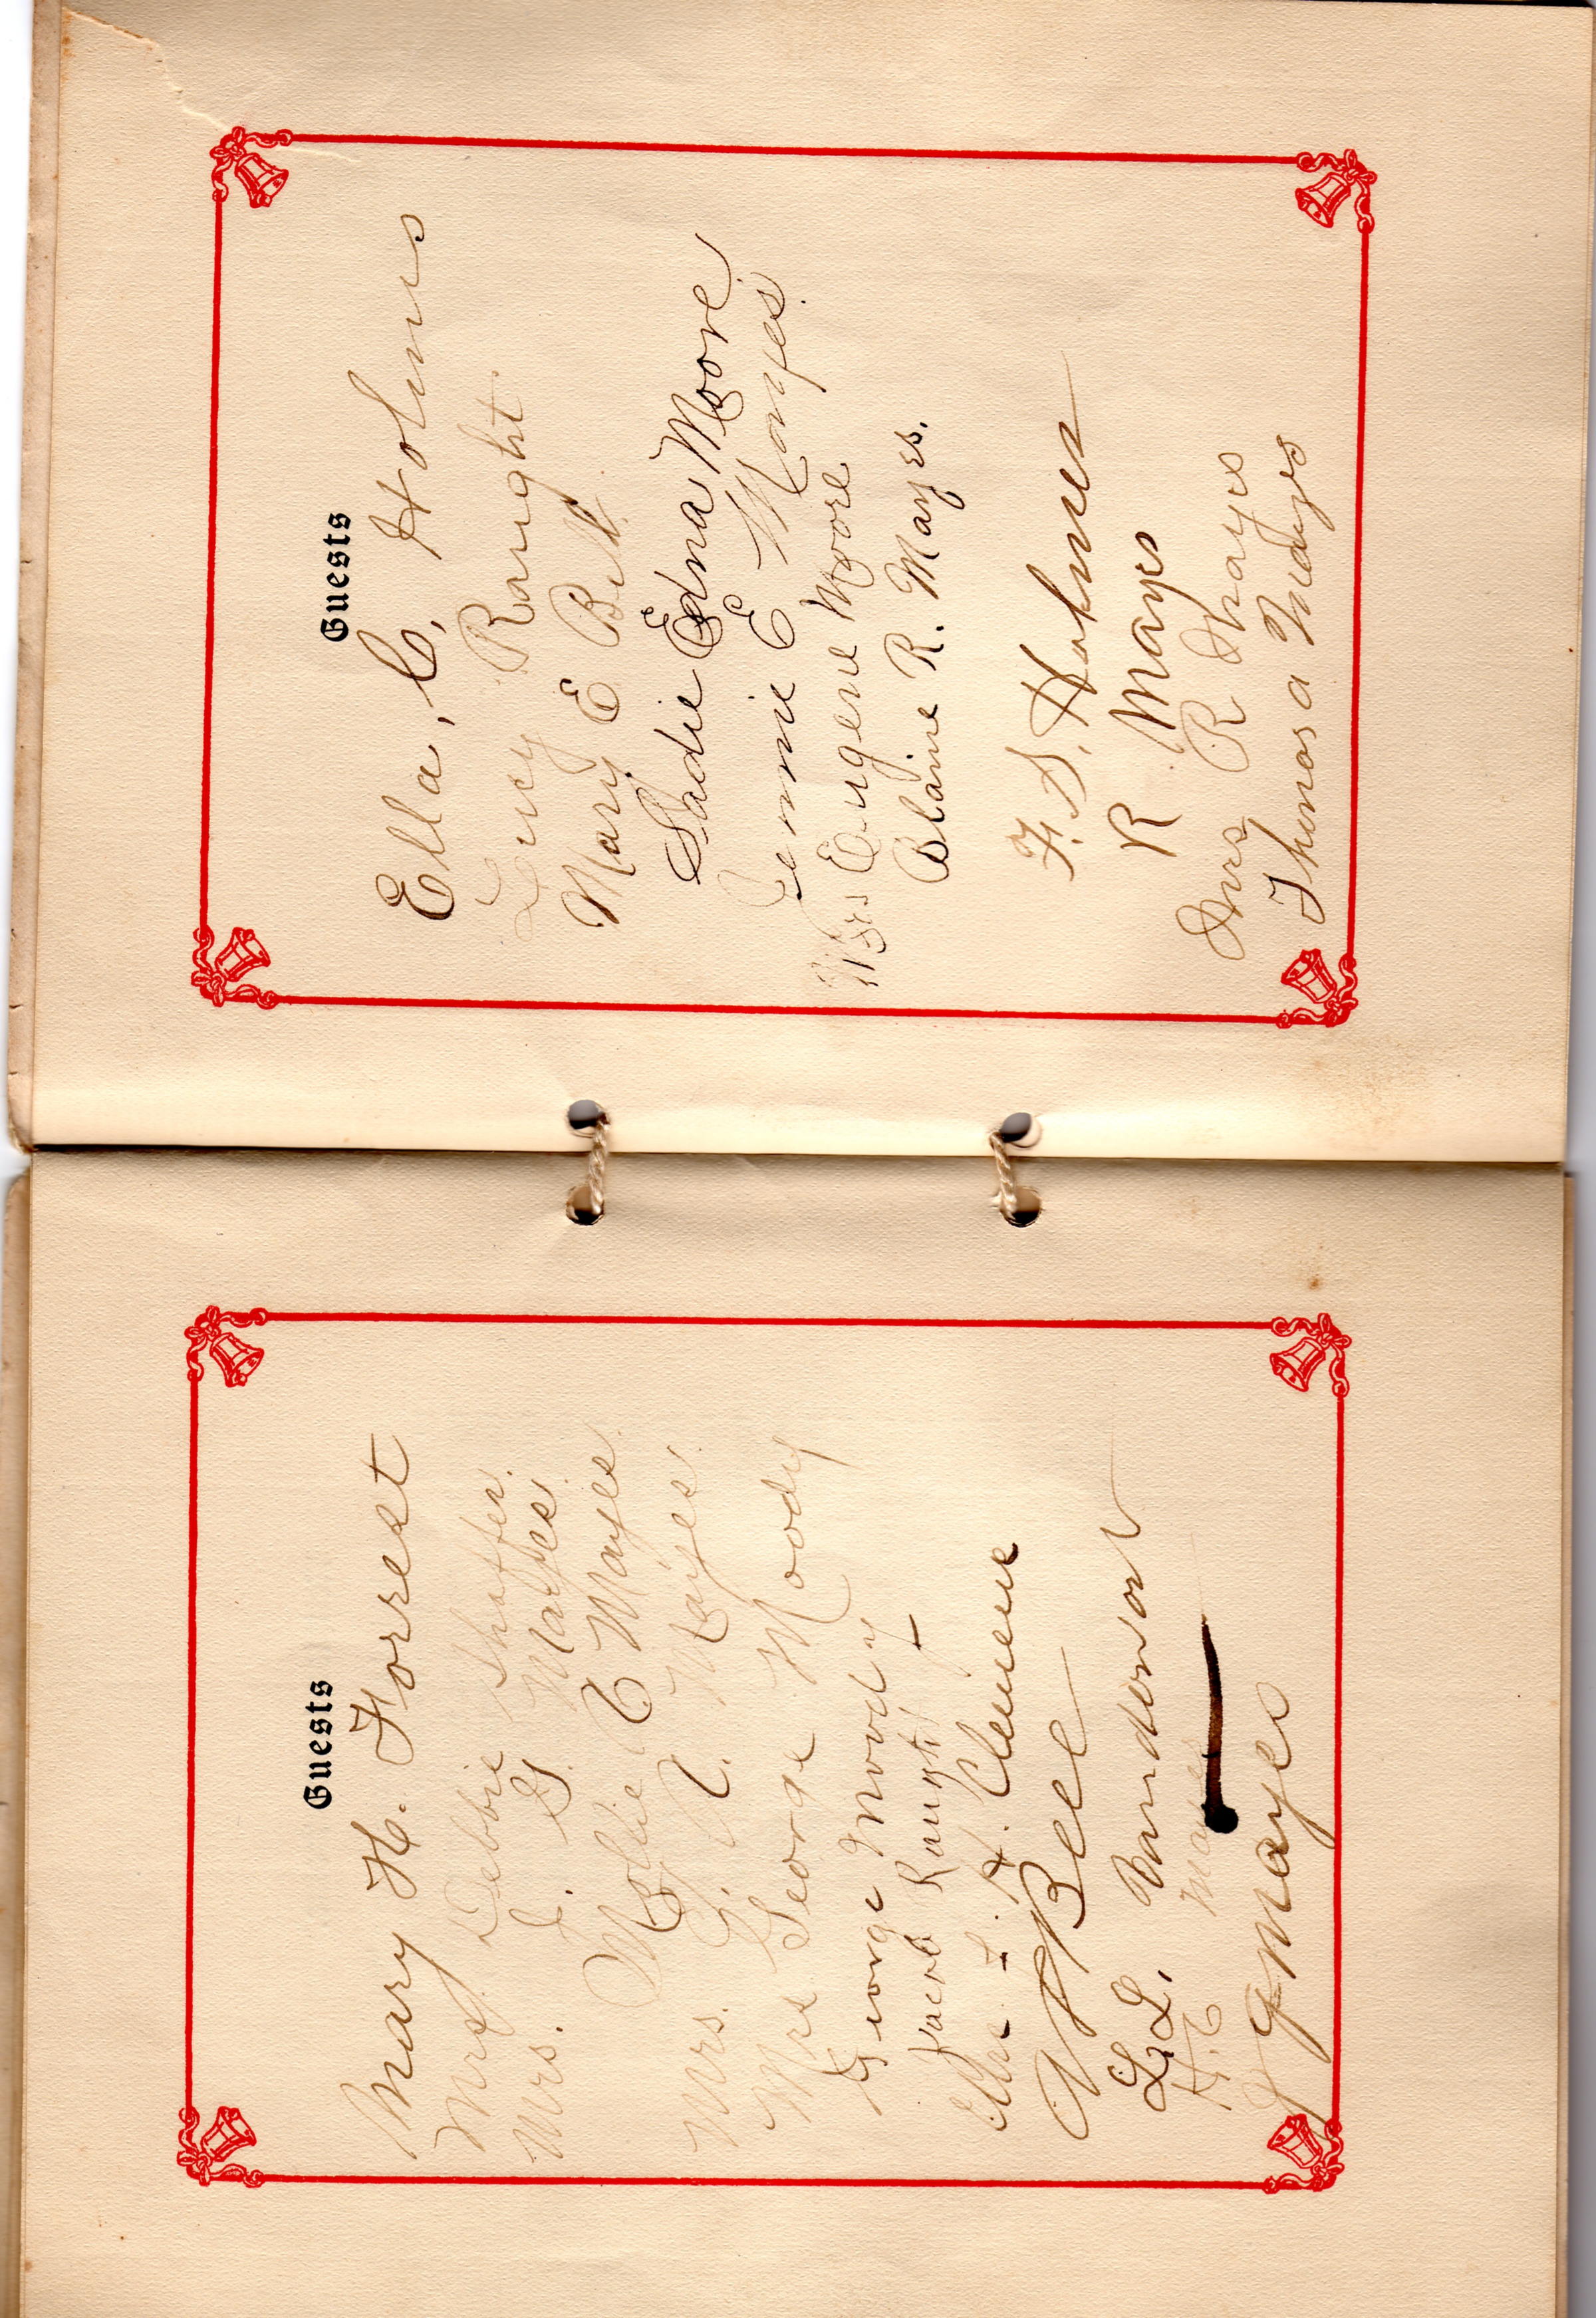 Guests
Mary H. Forrest
Mrs. Debbie Shaffer.
Mrs. J. G. Mayes.
Mollie C Mayes.
Mrs. G. A. Mayes.
Mrs George Moody
George Moody
Jacob Raught
H. Clemens
Bell
L. L. Vanderson
H. C
Mayes
Guests
Ella, C, Holmes
Lucy Raught.
Mary E Bell.
Sadie Edna Moore
Jennie E Mayes.
Mrs Eugene Moore
Blaine R. Mayes.
F. S. Holmes
R Mayes
Mrs R Mayes
Thomas a Mayes